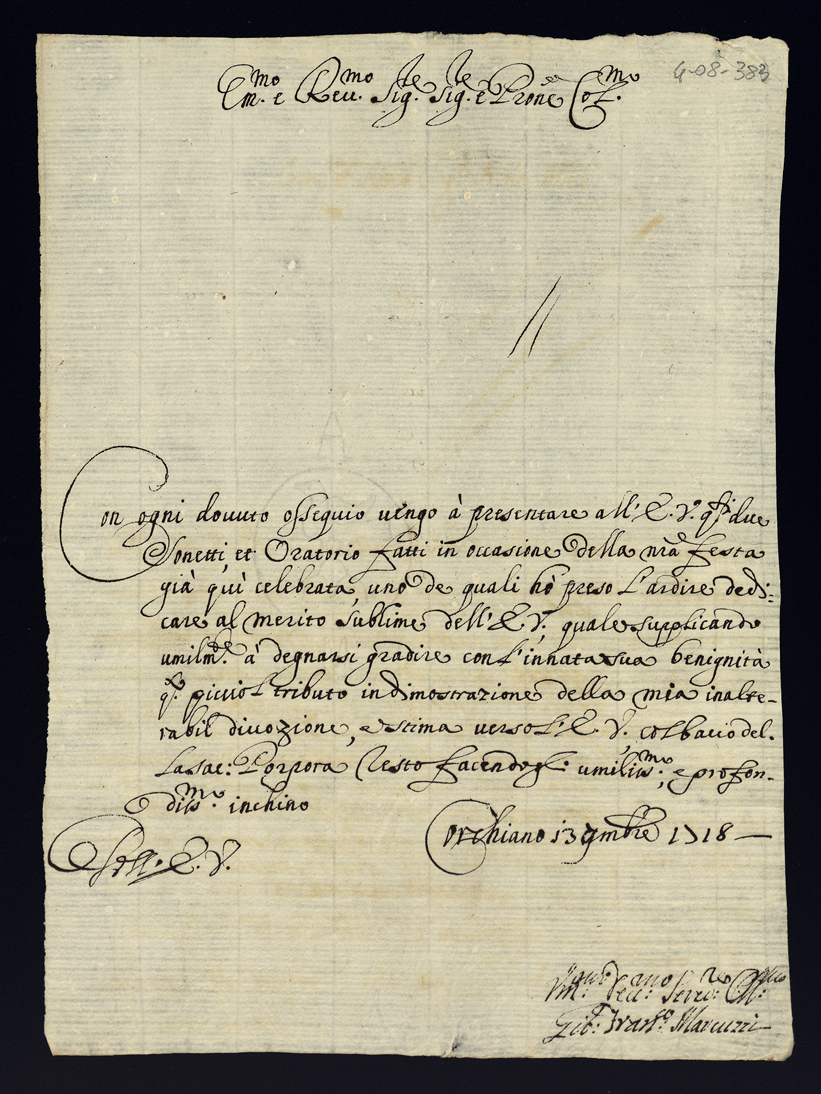 4-08-383
Em.mo e Rev.mo Sig.re Sig.re e Prone Col.mo
Con ogni dovuto ossequio vengo à presentare all'E.V. q.sti due
Sonetti, et Oratorio fatti in occasione della nrã festa
già quì celebrata, uno de quali hò preso l'ardire dedi:
care al merito sublime dell'E.V., quale supplicando
umilm.te à degnarsi gradire con l'innata sua benignità
q.to picciol tributo in dimostrazione della mia inalte-
rabil divozione, e stima verso l'E.V., col bacio del-
la sac: Porpora resto facendogl. umiliss.mo, e profon-
diss.mo inchino
Dell'E.V.
Corchiano 13 9mbre 1718 —
Um.mo Servr.
Gio: Fran.co Marcuzzi